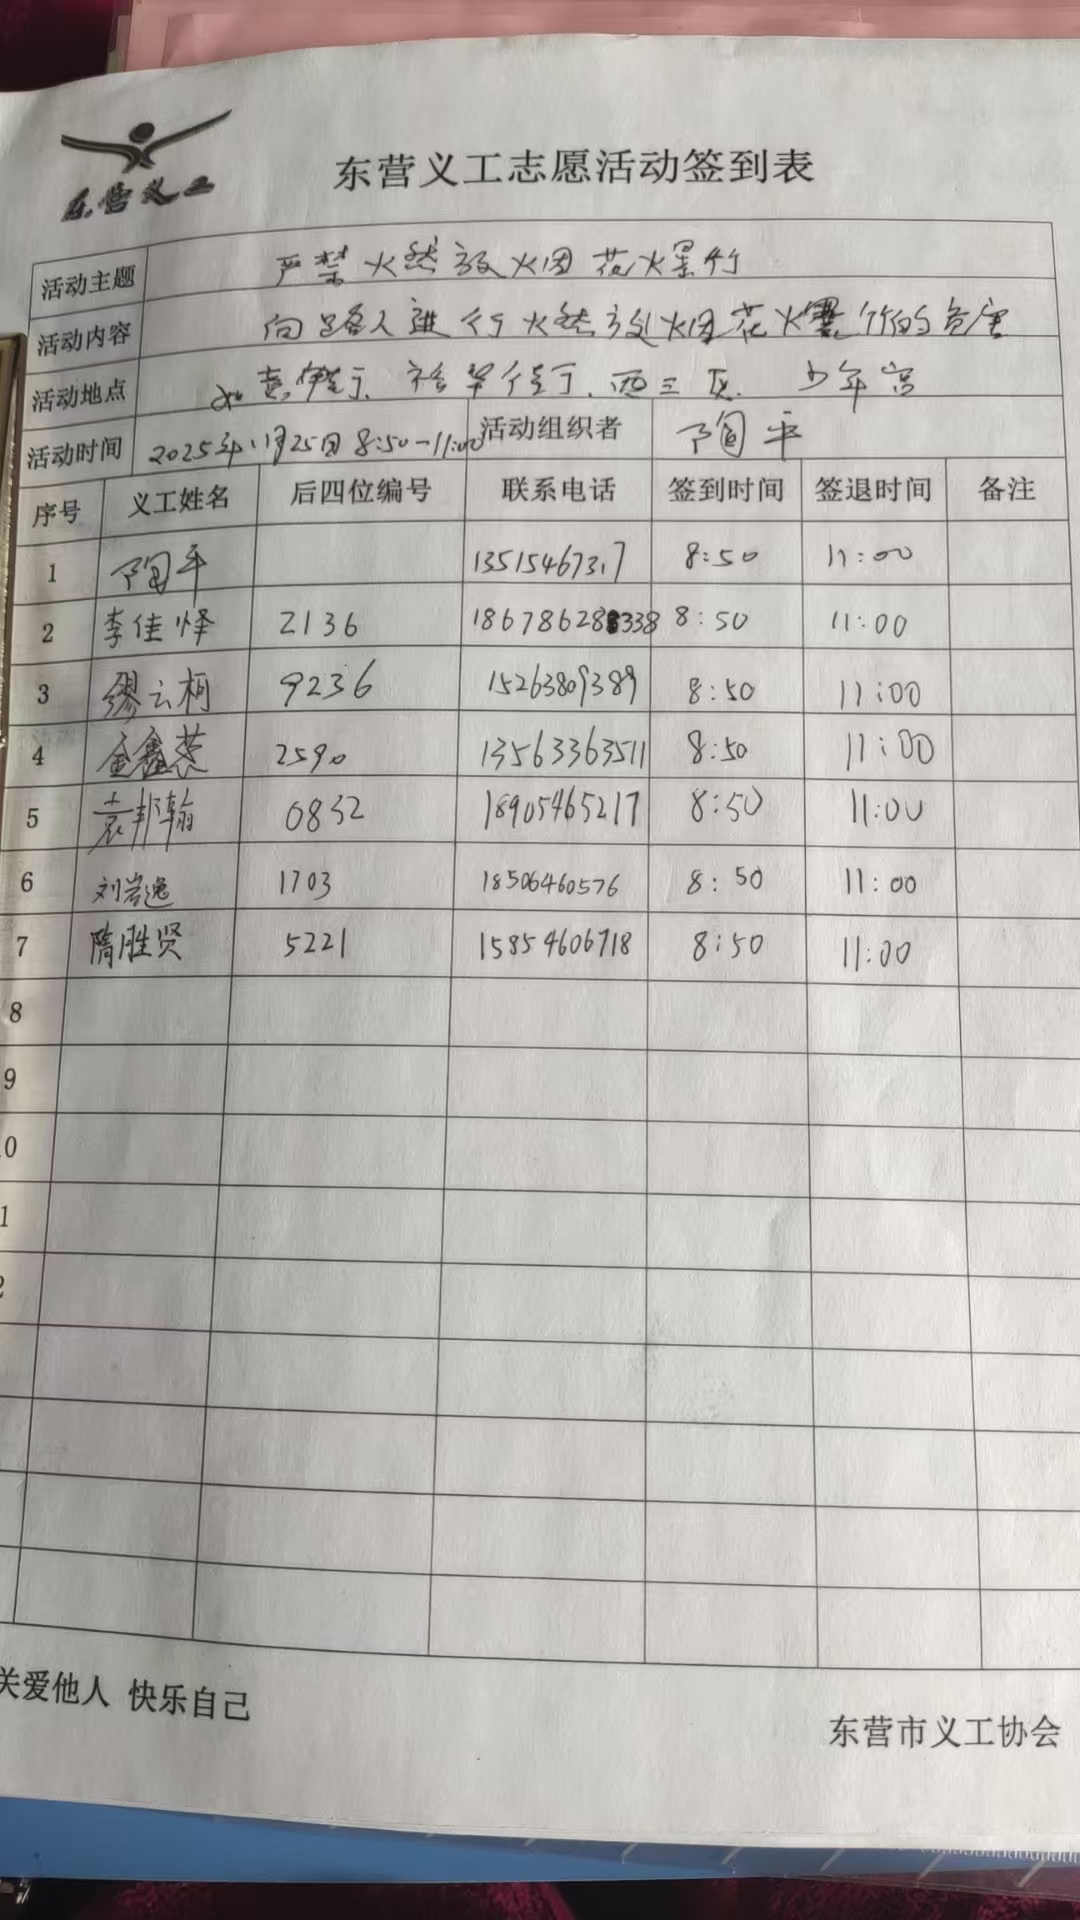 东营义工
东营义工志愿活动签到表
活动主题 严禁燃放烟花爆竹
活动内容 向路人进行燃放烟花爆竹的危害
活动地点 西三区 少年宫
活动时间 2025年1月25日 8:50-11:00 活动组织者 陶平
序号 义工姓名 后四位编号 联系电话 签到时间 签退时间 备注
1 陶平 13515467317 8:50 11:00
2 李佳烨 2136 8:50 11:00
3 缪云柯 9236 15263809389 8:50 11:00
4 金鑫 2590 13563363511 8:50 11:00
5 袁邦翰 0832 18905465217 8:50 11:00
6 刘岩逸 1703 18506460576 8:50 11:00
7 隋胜贤 5221 15854606718 8:50 11:00
8
9
0
1
2
关爱他人 快乐自己
东营市义工协会